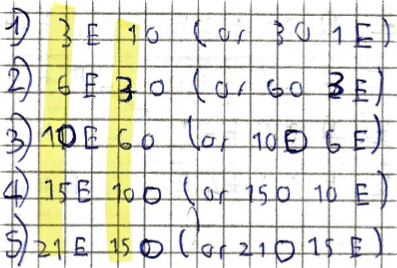 1) 3 E 1 O (or 3 O 1 E)
2) 6 E 3 O (or 6 O 3 E)
3) 10 E 6 O (or 10 O 6 E)
4) 15 E 10 O (or 15 O 10 E)
5) 21 E 15 O (or 21 O 15 E)